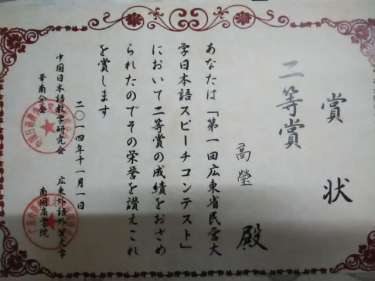 賞状
二等賞
高瑩 殿
あなたは「第一回広東省民营大
学日本語スピーチコンテスト」
において二等賞の成績をおさめ
られたのでその栄誉を讃えこれ
を賞します
二〇一四年十一月一日
中国日本語教学研究会 広東外語外貿大学
華南分会 南国商学院